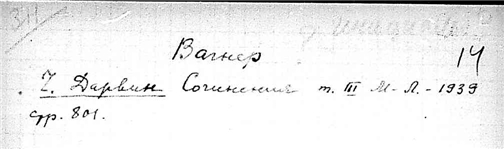 311
Вагнер 14
Ч. Дарвин Сочинения т. III М-Л.-1939
стр. 801.